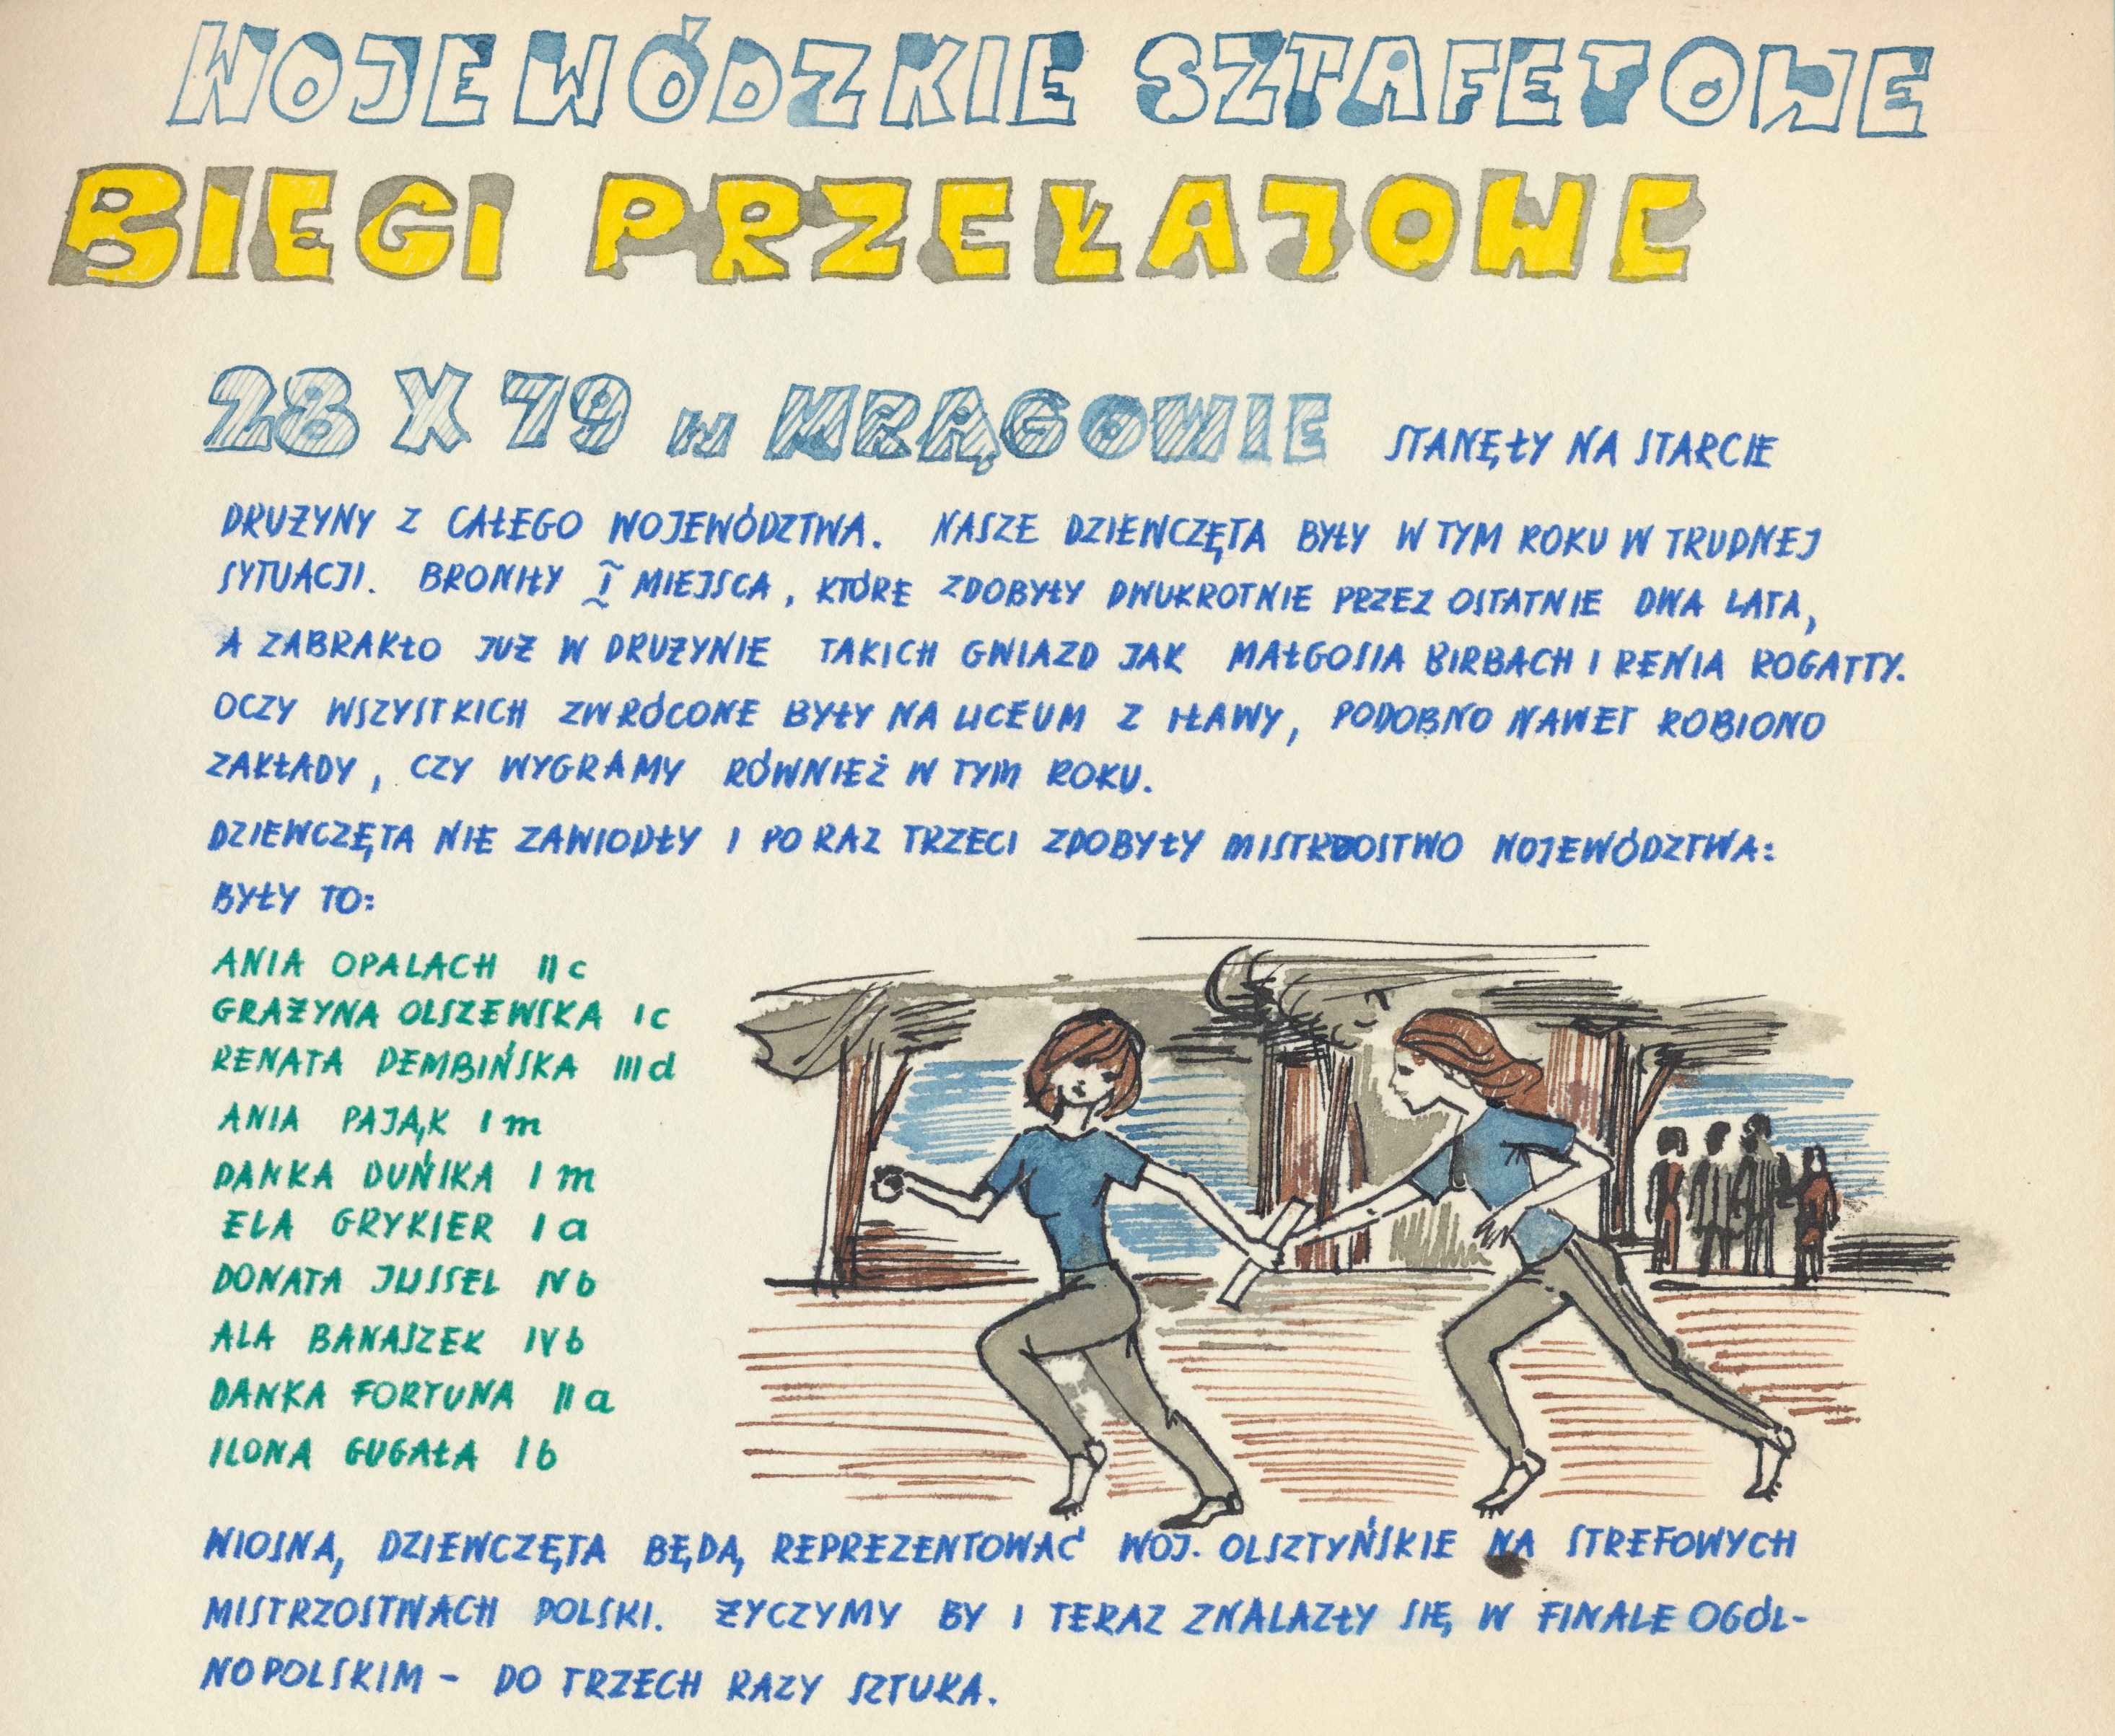 WOJEWÓDZKIE SZTAFETOWE
BIEGI PRZEŁAJOWE
28 X 79 W MRĄGOWIE STANĘŁY NA STARCIE
DRUŻYNY Z CAŁEGO WOJEWÓDZTWA. NASZE DZIEWCZĘTA BYŁY W TYM ROKU W TRUDNEJ
SYTUACJI. BRONIŁY I MIEJSCA, KTÓRE ZDOBYŁY DWUKROTNIE PRZEZ OSTATNIE DWA LATA,
A ZABRAKŁO JUŻ W DRUŻYNIE TAKICH GWIAZD JAK MAŁGOSIA BIRBACH I RENIA ROGATTY.
OCZY WSZYSTKICH ZWRÓCONE BYŁY NA LICEUM Z IŁAWY, PODOBNO NAWET ROBIONO
ZAKŁADY, CZY WYGRAMY RÓWNIEŻ W TYM ROKU.
DZIEWCZĘTA NIE ZAWIODŁY I PO RAZ TRZECI ZDOBYŁY MISTRZOSTWO WOJEWÓDZTWA:
BYŁY TO:
ANIA OPALACH II c
GRAŻYNA OLSZEWSKA I c
RENATA DEMBIŃSKA III d
ANIA PAJĄK I m
DANKA DUŃSKA I m
ELA GRYKIER I a
DONATA JUSSEL IV b
ALA BANASZEK IV b
DANKA FORTUNA II a
ILONA GUGAŁA I b
WIOSNĄ DZIEWCZĘTA BĘDĄ REPREZENTOWAĆ WOJ. OLSZTYŃSKIE NA STREFOWYCH
MISTRZOSTWACH POLSKI. ŻYCZYMY BY I TERAZ ZNALAZŁY SIĘ W FINALE OGÓL-
NOPOLSKIM - DO TRZECH RAZY SZTUKA.